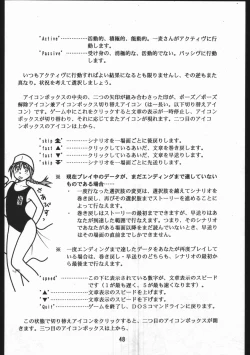 "Active"…………活動的、積極的、能動的。一麦さんがアクティヴに行
動します。
"Passive"…………受け身の、消極的な、活動的でない。パッシヴに行動
します。
いつもアクティヴに行動すればよい結果になるとも限りませんし、その逆もまた
真なり。状況を考えて選択しましょう。
アイコンボックスの中央の、二つの矢印が組み合わさった印が、ポーズ／ポーズ
解除アイコン兼アイコンボックス切り替えアイコン（は一長い。以下切り替えアイコ
ン）です。ゲーム中にこれをクリックするとまず文章の表示が一時停止し、アイコン
ボックスが切り替わり、それに応じてまたアイコンが変化します。二つ目のアイコ
ンボックスのアイコンは上から、
"skip ▲"…………シナリオを一場面ごとに後戻りします。
"fast ▲"…………クリックしているあいだ、文章を巻き戻します。
"fast ▼"…………クリックしているあいだ、文章を早送りします。
"skip ▼"…………シナリオを一場面ごとに早送りします。
※ 現在プレイ中のデータが、まだエンディングまで達していない
ものである場合……
一度行なった選択肢の変更は、選択肢を越えてシナリオを
巻き戻し、再びその選択肢までストーリーを進めることに
よって行えます。
巻き戻しはストーリーの最初までできますが、早送りはあ
なたが到達した範囲で行なえます。つまり、そのシナリオ
であなたがある場面以降をまだ読んでいないとき、早送り
はその場面の直前までしかできません。
※ 一度エンディングまで達したデータをあなたが再度プレイして
いる場合は、巻き戻し・早送りのどちらも、シナリオの最初か
ら最後まで行なえます。
"speed"…………この下に表示されている数字が、文章表示のスピード
です（１が最も遅く、５が最も速くなります）。
"▲"…………文章表示のスピードを上げます。
"▼"…………文章表示のスピードを下げます。
"Quit"…………ゲームを終了し、ＤＯＳコマンドラインに戻ります。
この状態で切り替えアイコンをクリックすると、二つ目のアイコンボックスが開
きます。二つ目のアイコンボックスは上から、
48